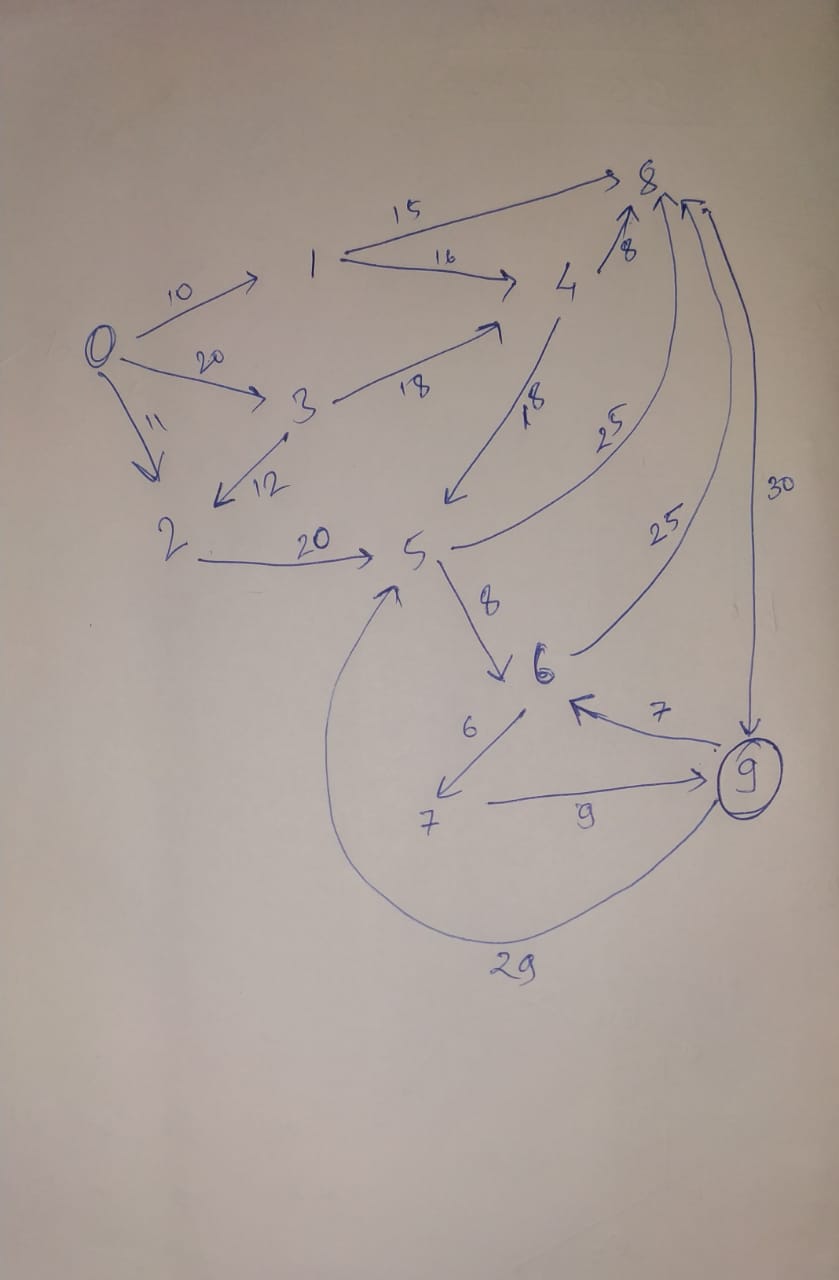 8
15
1
16
4
8
10
0
20
3
18
18
11
12
25
30
2
20
5
25
8
6
7
6
9
7
9
29